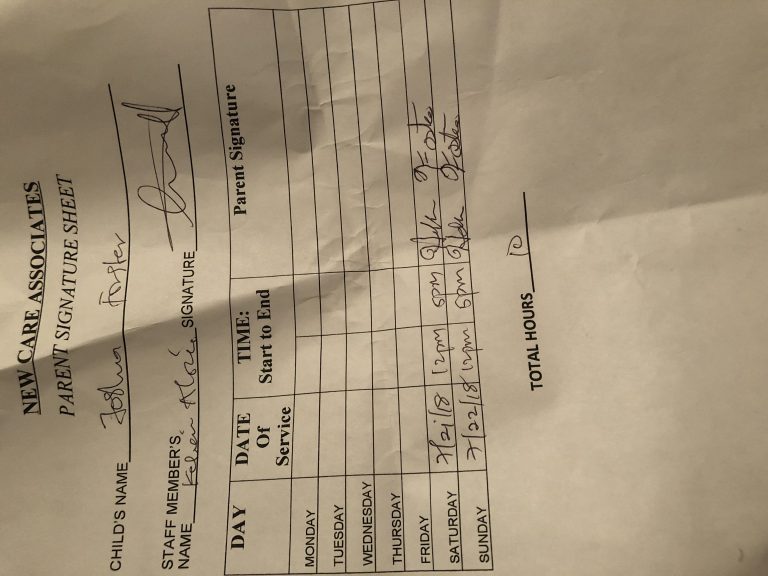 NEW CARE ASSOCIATES
PARENT SIGNATURE SHEET
CHILD'S NAME Joshua Forster
STAFF MEMBER'S
NAME Kelvin SIGNATURE
DAY DATE Of Service TIME: Start to End Parent Signature
MONDAY
TUESDAY
WEDNESDAY
THURSDAY
FRIDAY
SATURDAY 7/21/18 12pm 5pm
SUNDAY 7/22/18 12pm 5pm
TOTAL HOURS 10